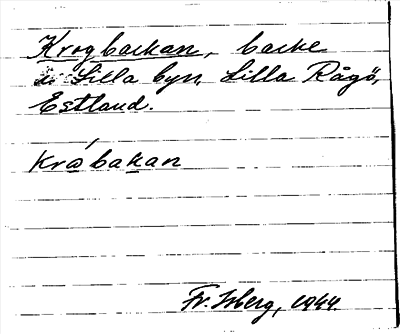 Krogbackan, backe
i Lilla byn, Lilla Rågö,
Estland.
krabakan
Fr. Isberg, 1944.